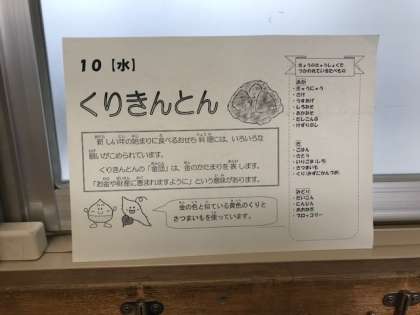 10【水】
くりきんとん
新しい年の始まりに食べるおせち料理には、いろいろな
願いがこめられています。
くりきんとんの「金団」は、金のかたまりを表します。
「お金や財産に恵まれますように」という意味があります。
金の色と似ている黄色のくりと
さつまいもを使っています。
きょうのきゅうしょくで
つかわれているたべもの
あか
・ぎゅうにゅう
・さけ
・うすあげ
・しろみそ
・あかみそ
・だしこんぶ
・けずりぶし
き
・ごはん
・さとう
・さつまいも
みどり
・だいこん
・にんじん
・ブロッコリー